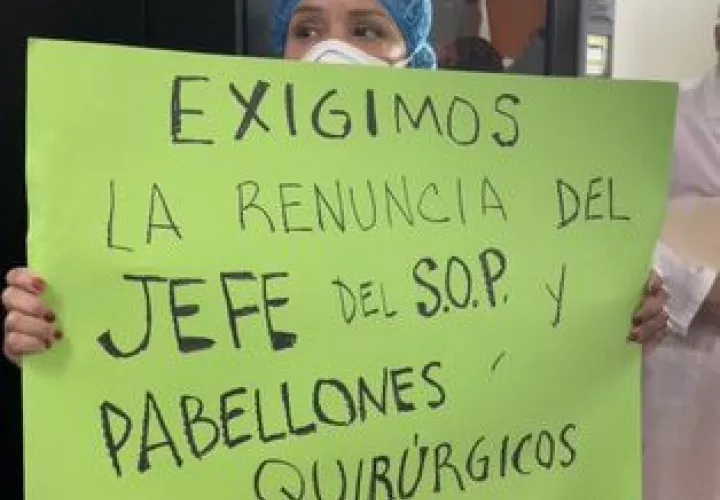 EXIGIMOS
LA RENUNCIA DEL
JEFE DEL S.O.P. Y
PABELLONES
QUIRÚRGICOS